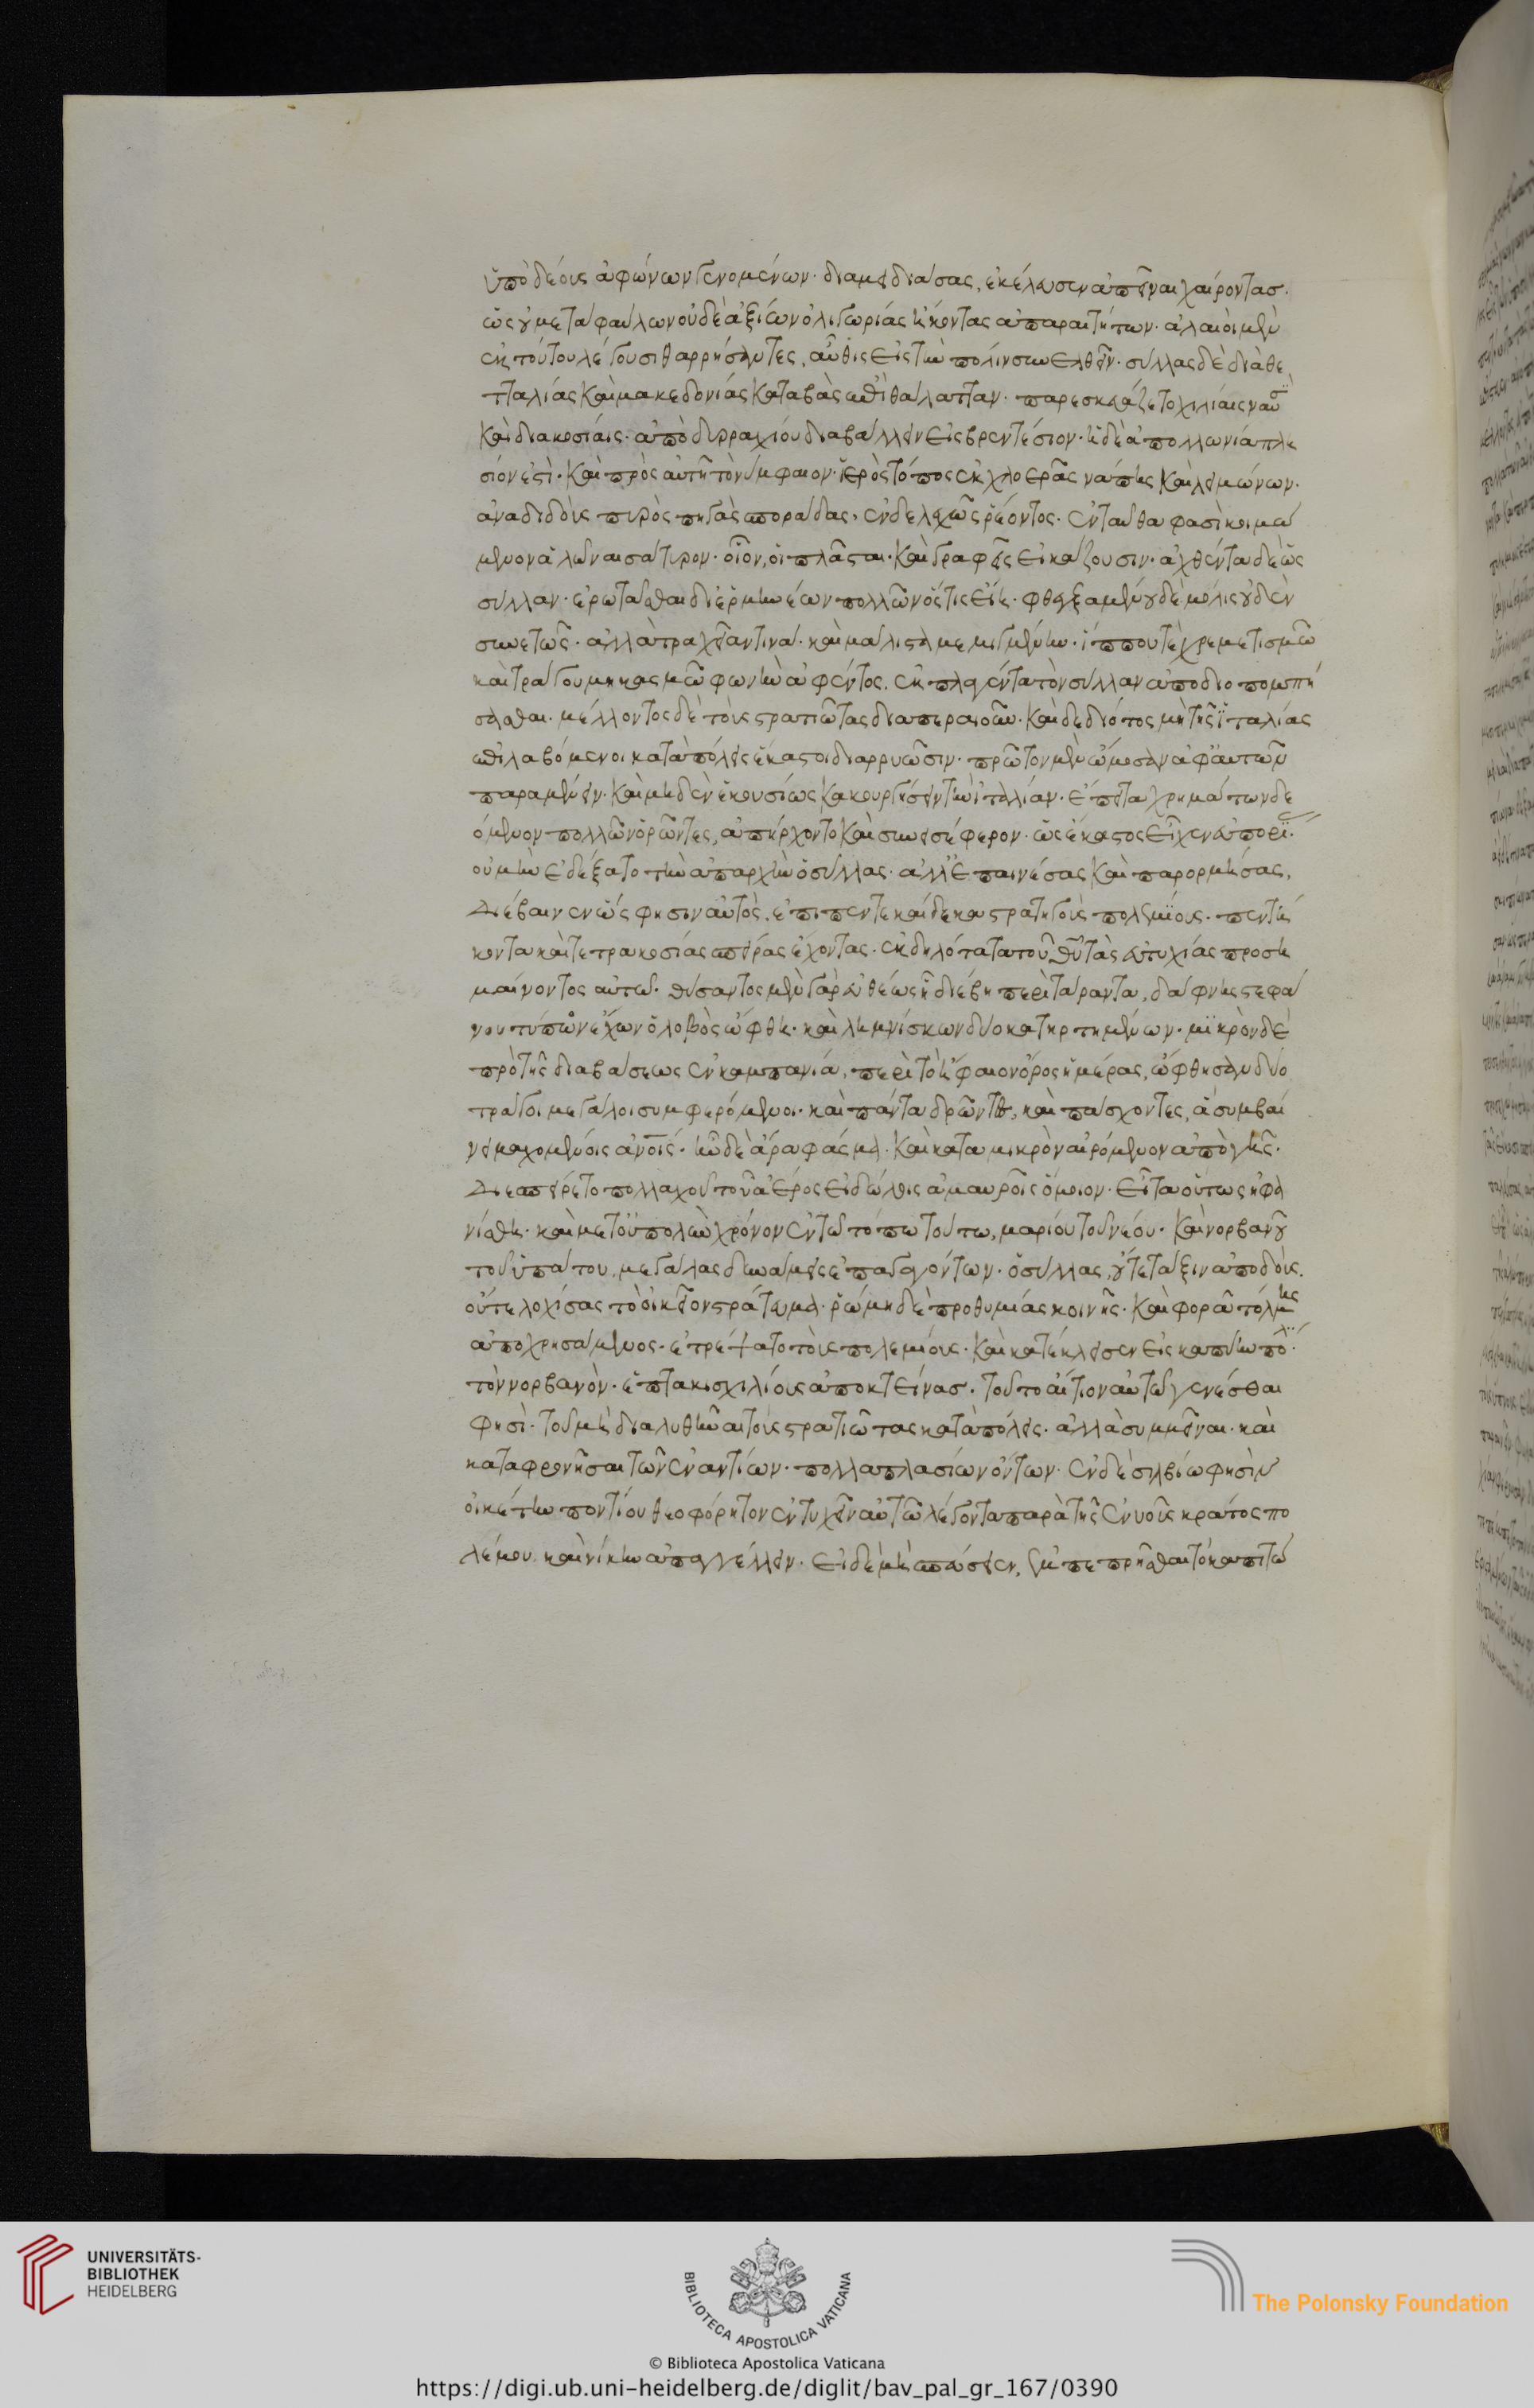 ὑπὸ δέους ἀφώνων γενομένων· διαμειδιάσας, ἐκέλευσεν ἀπιέναι χαίροντασ.
ὡς οὐ μετὰ φαύλων οὐδὲ ἀξίων ὀλιγωρίας ἥκοντας ἀπαραιτήτων· ἁλαιοι μὲν
ἐκ τούτου λέγουσι θαρρήσαντες, αὖθις εἰς τὴν πόλιν συνελθεῖν· σύλλας δὲ διὰ θε
τταλίας καὶ μακεδονίας καταβὰς ἐπὶ θάλατταν· παρεσκευάζετο χιλίαις ναυσ
καὶ διακοσίαις· ἀπὸ δυρραχίου διαβάλλειν εἰς βρεντέσιον· ἡ δὲ ἀπολλωνία πλη
σίον ἐστὶ· καὶ πρὸς αὐτῇ τὸ νύμφαιον· ἱερὸς τόπος ἐκ χλοερᾶς νάπης καὶ λειμώνων·
ἀναδιδοὺς πυρὸς πηγὰς σποράδας, ἐνδελεχῶς ῥέοντος· ἐνταῦθα φασὶ κοιμώ
μενον ἁλῶναι σάτυρον· οἷον, οἱ πλάσται· καὶ γραφεῖς εἰκάζουσιν· ἀχθέντα δὲ ὡς
σύλλαν· ἐρωτᾶσθαι δι' ἑρμηνέων πολλῶν ὅστις εἴη· φθεγξαμένου δὲ μόλις οὐδὲν
συνετῶς· ἀλλὰ τραχεῖαν τινα· καὶ μάλιστα μεμιγμένην· ἵππου τὲ χρεμετισμῶ
καὶ τράγου μηκασμῶ φωνὴν ἀφέντος. ἐκπλαγέντα τὸν σύλλαν ἀποδιοπομπή
σασθαι· μέλλοντος δὲ τοὺς στρατιώτας διαπεραιοῦν· καὶ δεδιότος μὴ τῆς ἰταλίας
ἐπιλαβόμενοι κατὰ πόλεις ἕκαστοι διαρρυῶσιν· πρῶτον μὲν ὤμοσαν ἀφ' αὑτῶν
παραμενεῖν· καὶ μηδὲν ἑκουσίως κακουργήσειν τὴν ἰταλίαν· ἔπειτα χρημάτων δε
όμενον πολλῶν ὁρῶντες, ἀπήρχοντο καὶ συνεισέφερον· ὡς ἕκαστος εἶχεν εὐπορί.
οὐ μὴν ἐδέξατο τὴν ἀπαρχὴν ὁ σύλλας· ἀλλ' ἐπαινέσας καὶ παρορμήσας,
διέβαινεν ὥς φησιν αὐτὸς, ἐπὶ πεντεκαίδεκα στρατηγοὺς πολεμίους· πεντή
κοντα καὶ τετρακοσίας σπείρας ἔχοντας· ἐκδηλότατα τοῦ θεοῦ τὰς εὐτυχίας προση
μαίνοντος αὐτῶ· θύσαντος μὲν γὰρ εὐθέως ᾗ διέβη περὶ τάραντα, δάφνης στεφά
νου τύπον ἔχων ὁ λοβὸς ὤφθη· καὶ λημνίσκων δύο κατηρτημένων· μικρὸν δὲ
πρὸ τῆς διαβάσεως ἐν καμπανία, περὶ τὸ ἥφαιον ὄρος ἡμέρας, ὤφθησαν δύο
τράγοι μεγάλοι συμφερόμενοι· καὶ πάντα δρῶντες, καὶ πάσχοντες, ἃ συμβαί
νει μαχομένοις ἀνοις· ἦν δὲ ἄρα φάσμα· καὶ κατὰ μικρὸν αἰρόμενον ἀπὸ γῆς·
διεσπείρετο πολλαχοῦ τοῦ ἀέρος εἰδώλοις ἀμαυροῖς ὅμοιον· εἶτα οὕτως ἠφα
νίσθη· καὶ μετ' οὐ πολὺν χρόνον ἐν τῶ τόπω τούτω, μαρίου τοῦ νέου· καὶ νορβανοῦ
τοῦ ὑπάτου, μεγάλας δυνάμεις ἐπαγόντων· ὁ σύλλας, οὔτε τάξιν ἀποδοὺς.
οὔτε λοχίσας τὸ οἰκεῖον στράτευμα· ῥώμη δὲ προθυμίας κοινῆς· καὶ φορᾶ τόλμης
ἀποχρησάμενος· ἐτρέψατο τοὺς πολεμίους· καὶ κατέκλεισεν εἰς καπύην πόλ.
τὸν νορβανὸν· ἑπτακισχιλίους ἀποκτείνας. τοῦτο αἴτιον αὐτῶ γενέσθαι
φησὶ· τοῦ μὴ διαλυθῆναι τοὺς στρατιώτας κατὰ πόλεις· ἀλλὰ συμμεῖναι· καὶ
καταφρονῆσαι τῶν ἐναντίων· πολλαπλασίων ὄντων· ἐν δὲ σιλβίω φησὶν
οἰκέτην ποντίου θεοφόρητον ἐντυχεῖν αὐτῶ λέγοντα παρὰ τῆς ἐνυοῦς κράτος πο
λέμου καὶ νίκην ἀπαγγέλλειν· εἰ δὲ μὴ σπεύσειεν, ἐμπεπρῆσθαι τὸ καπιτώ
UNIVERSITÄTS-
BIBLIOTHEK
HEIDELBERG
BIBLIOTECA APOSTOLICA VATICANA
The Polonsky Foundation
© Biblioteca Apostolica Vaticana
https://digi.ub.uni-heidelberg.de/diglit/bav_pal_gr_167/0390